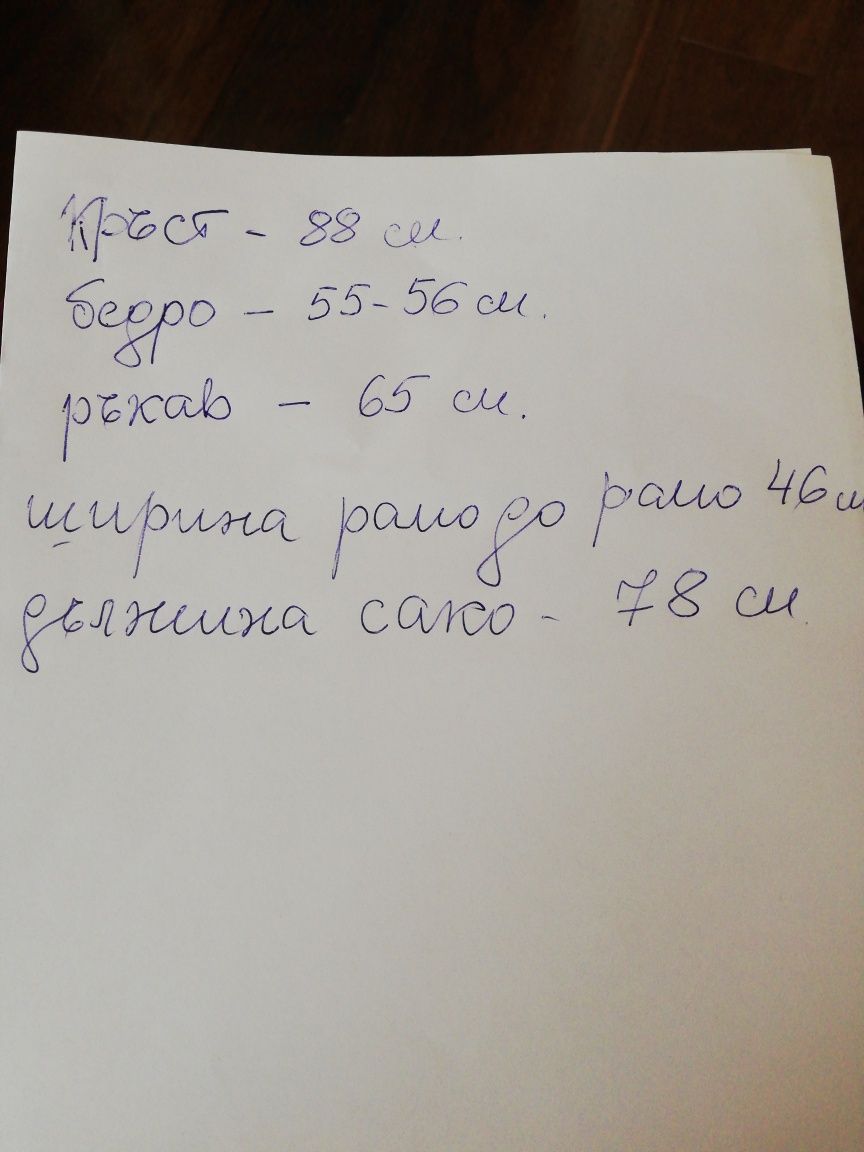 Кръст - 88 см.
бедро - 55-56 см.
ръкав - 65 см.
ширина рамо до рамо 46 см
дължина сако - 78 см.